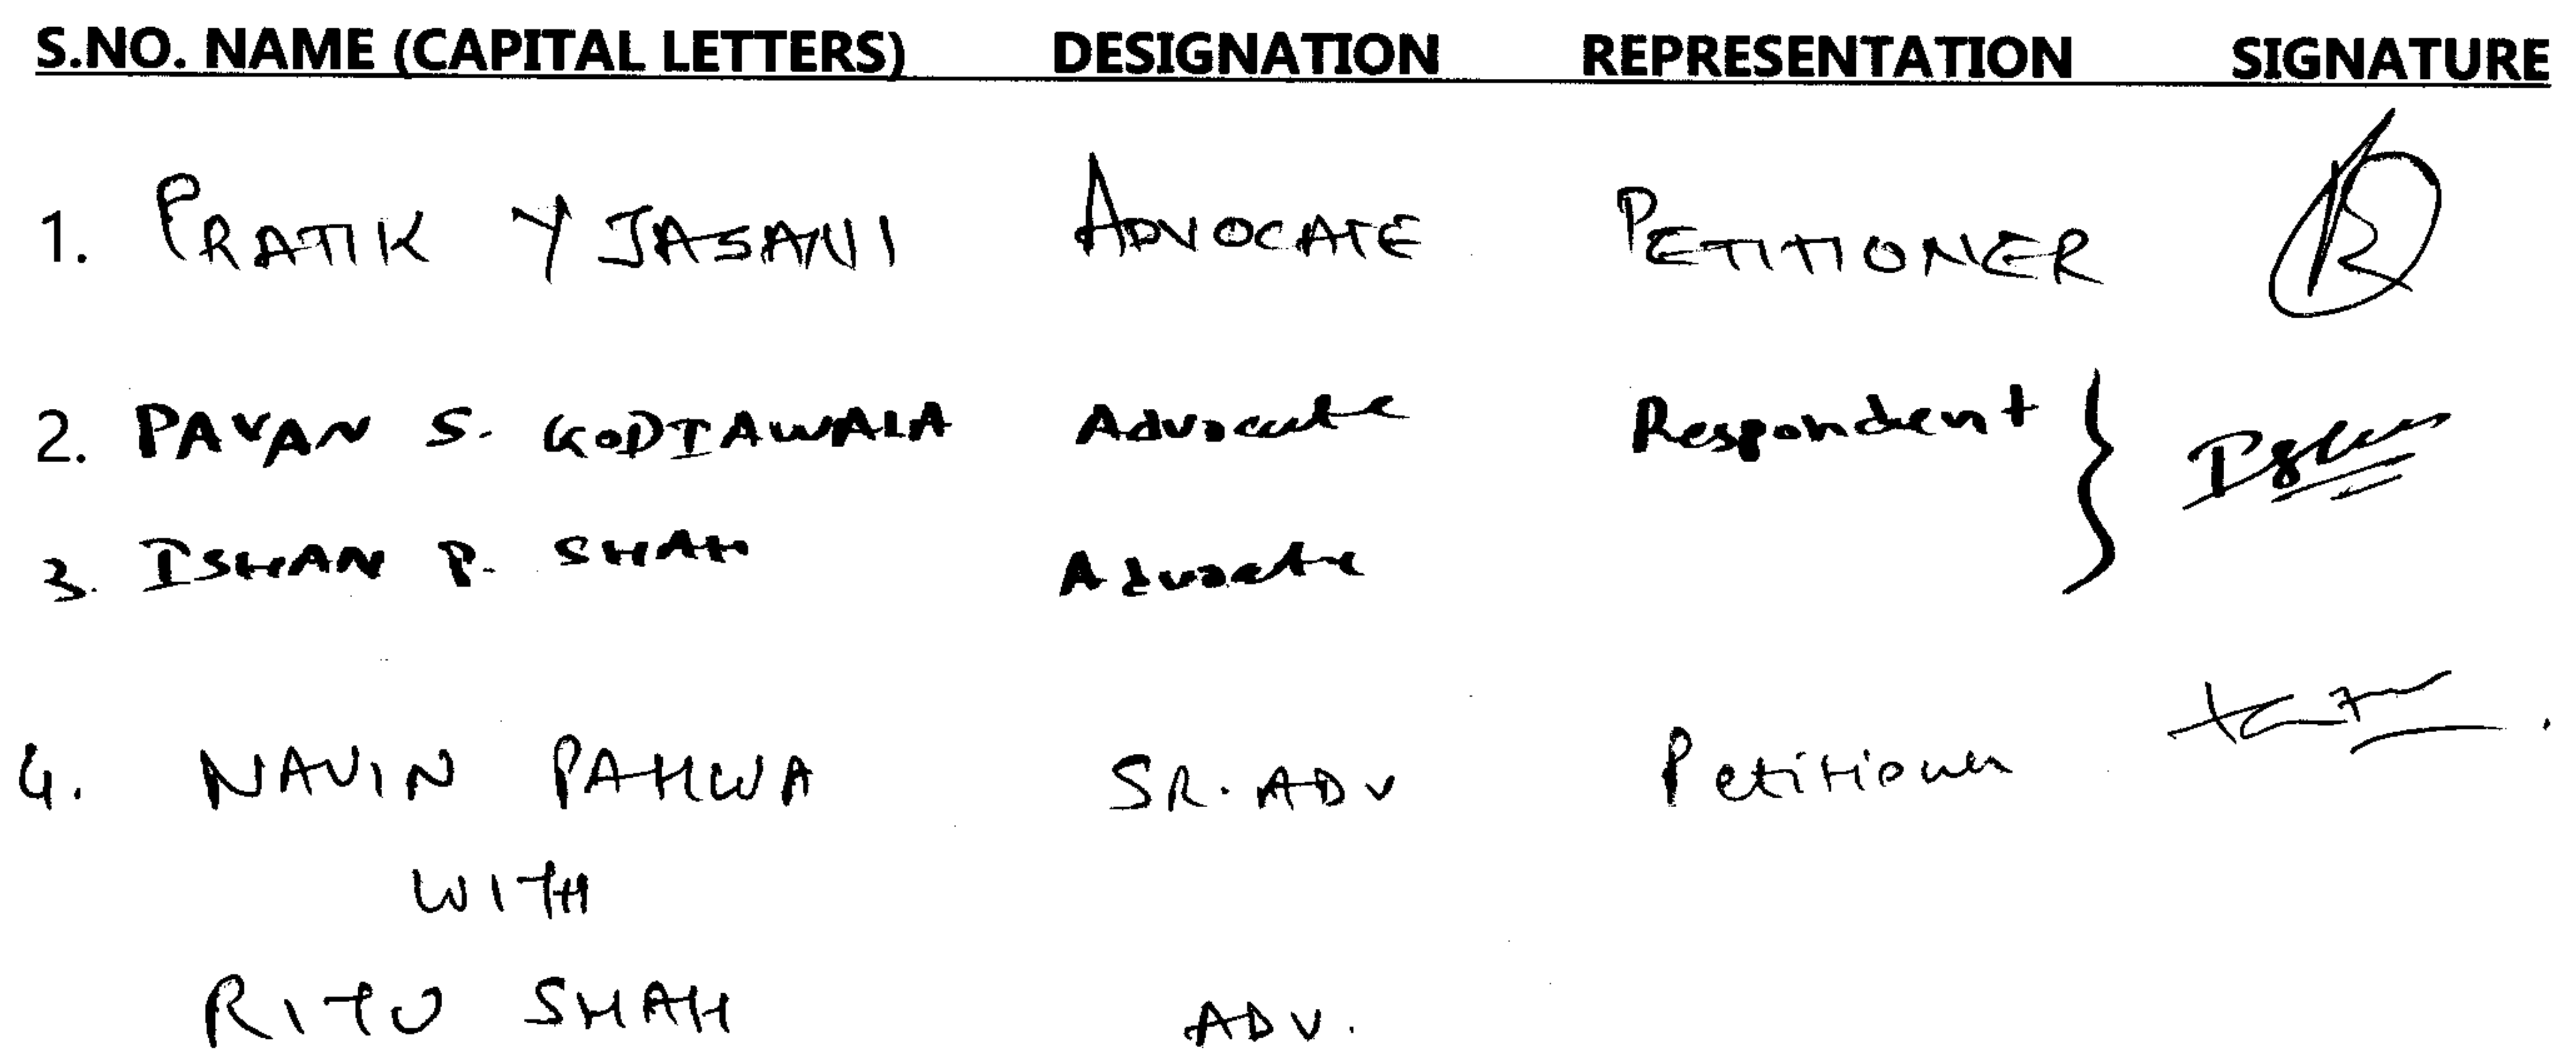 S.NO. NAME (CAPITAL LETTERS) DESIGNATION REPRESENTATION SIGNATURE
1. PRATIK Y JASANI ADVOCATE PETITIONER
2. PAVAN S. GODIAWALA Advocate Respondent
3. ISHAN P. SHAH Advocate
4. NAVIN PAHWA SR. ADV Petitioner
WITH
RITU SHAH ADV.